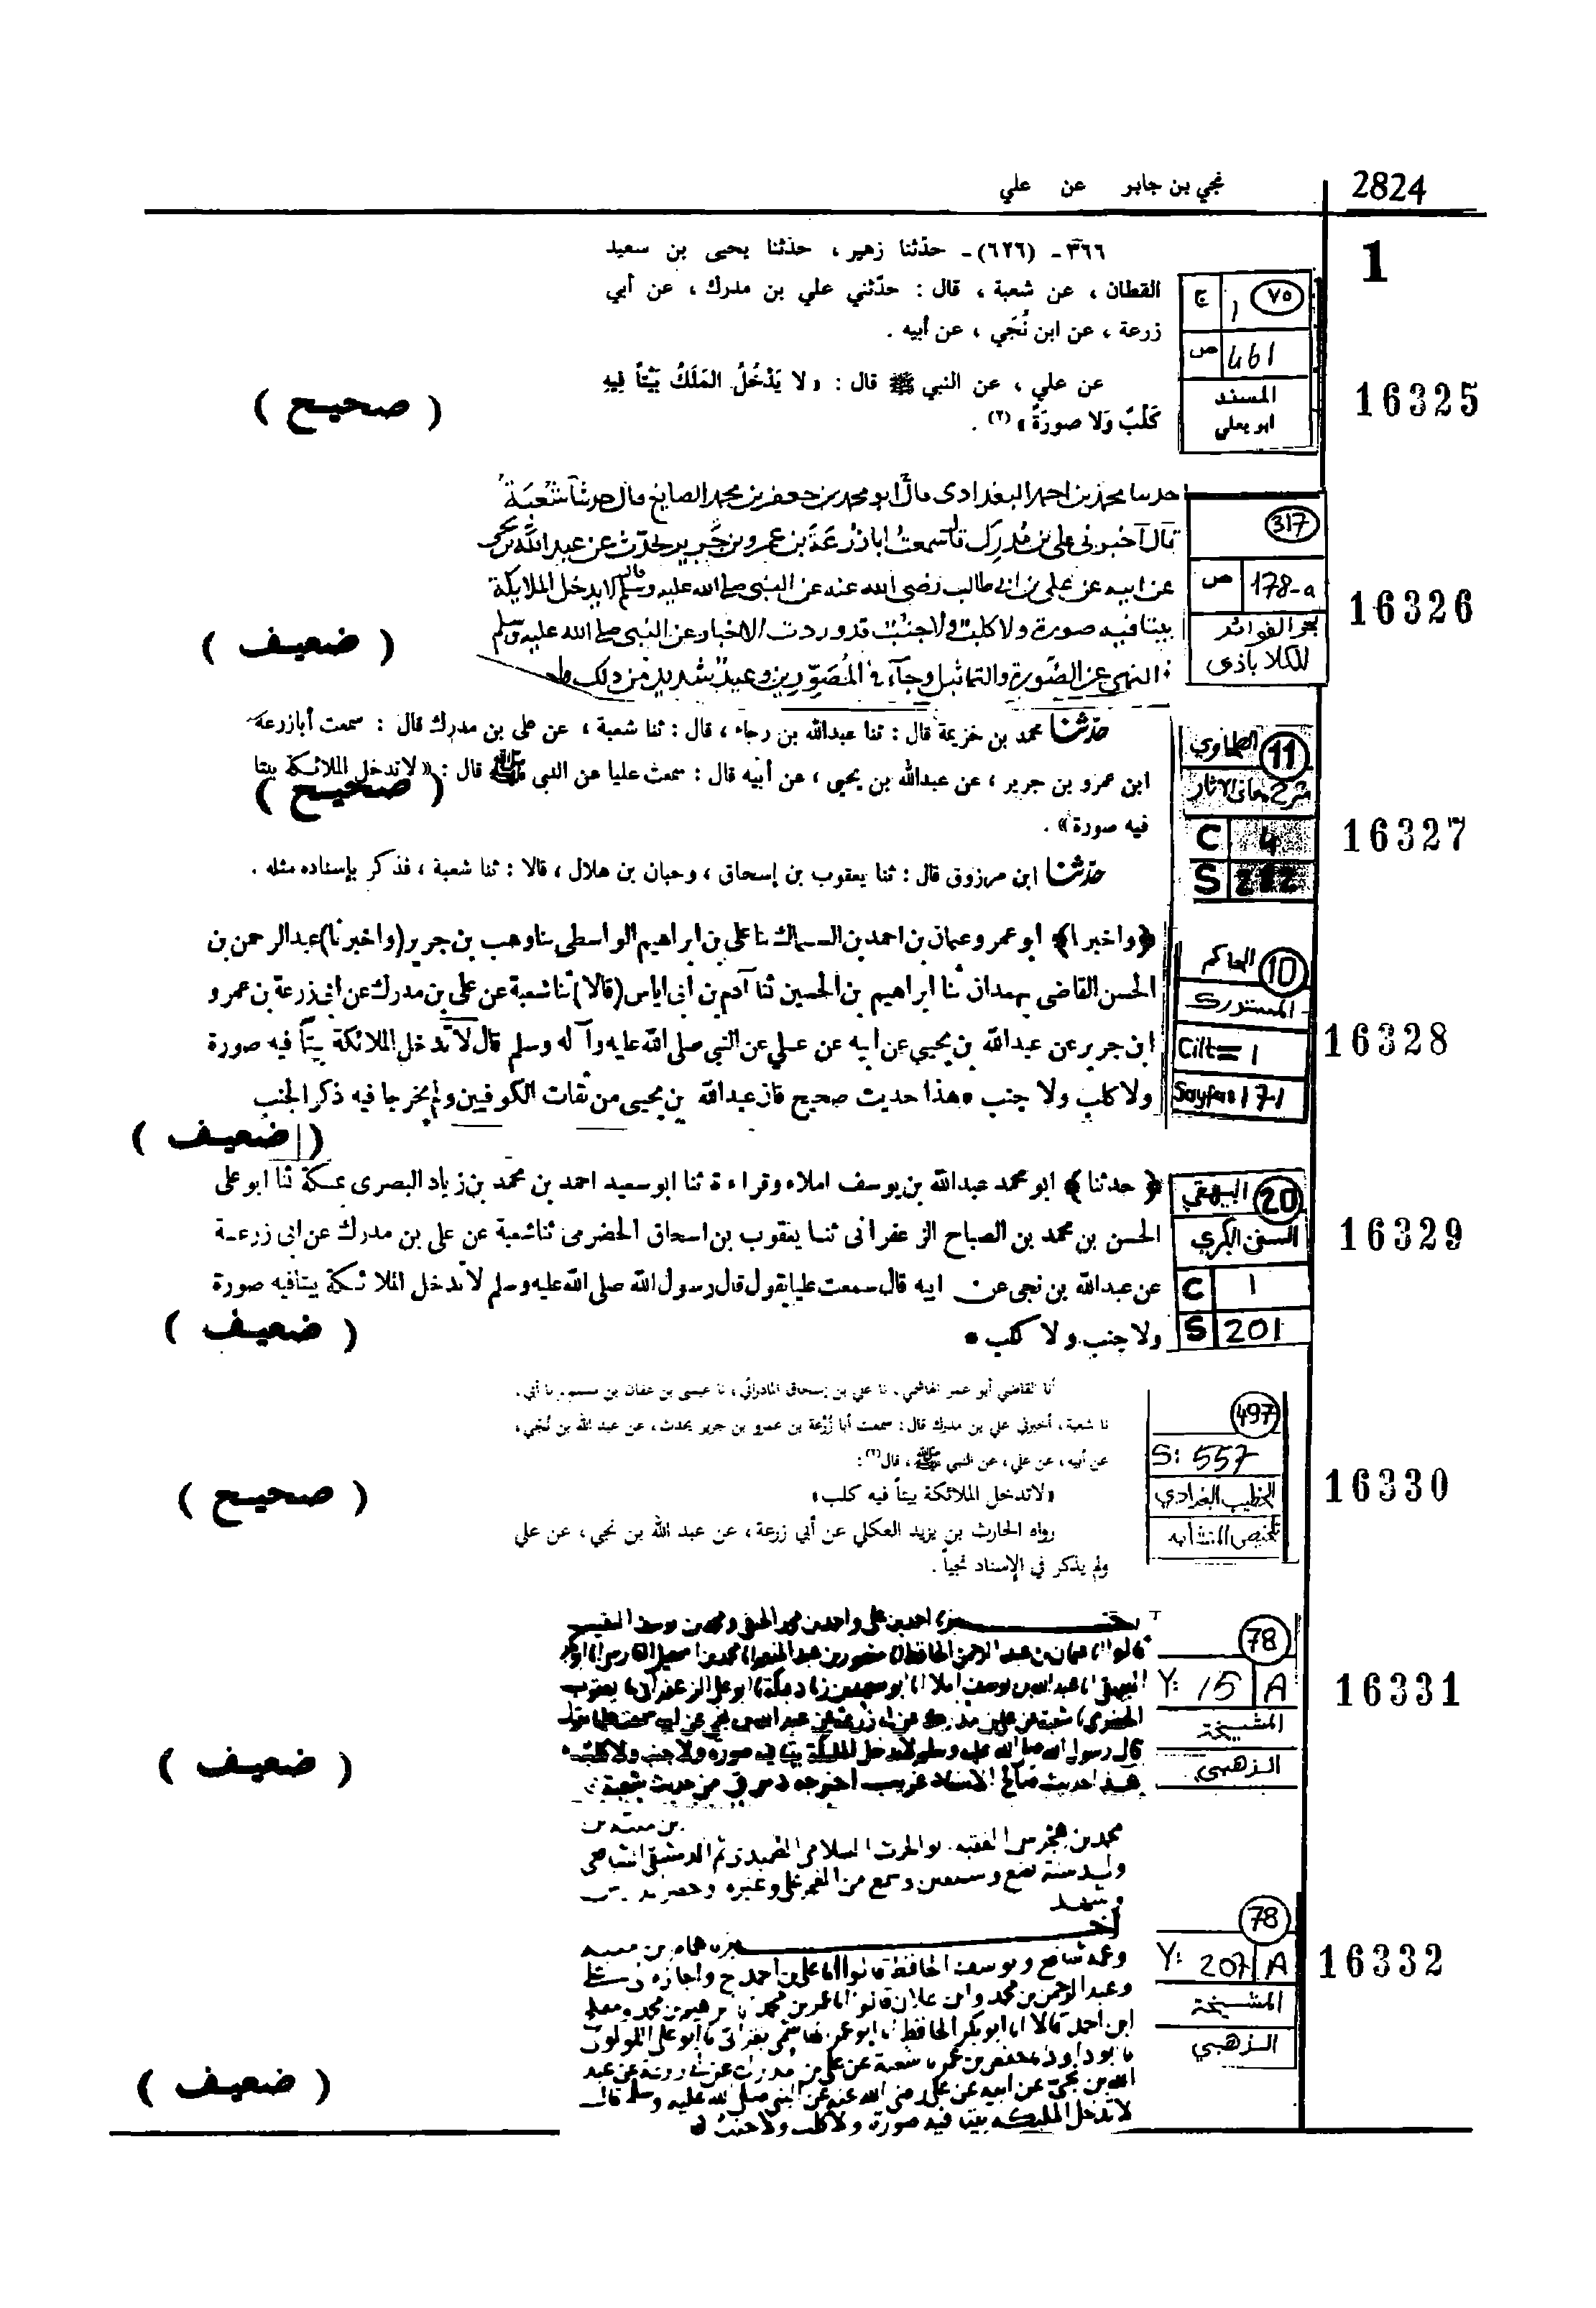 2824
نجي بن جابر عن علي
1
٣٦٦ - (٦٢٦) - حدّثنا زهير ، حدّثنا يحيى بن سعيد
القطان ، عن شعبة ، قال : حدّثني علي بن مدرك ، عن أبي
زرعة ، عن ابن نُجَي ، عن أبيه .
عن علي ، عن النبي ﷺ قال : « لا يَدْخُلُ المَلَكُ بَيْتاً فِيهِ
كَلْبٌ وَلا صورَةٌ » (٢) .
٧٥
ج ١
ص 461
المسند
ابو يعلى
16325
( صحيح )
حدثنا محمد بن احمد البغدادى قال ابو محمد بن جعفر بن محمد الصايغ قال حدثنا شعبة
قال اخبرنى على بن مُدرِك قال سمعتُ ابا زرعة بن عمرو بن جَرير يحدّث عن عبد الله بن
عن ابيه عن على بن ابى طالب رضى الله عنه عن النبى صلى الله عليه وسلم قال لا يدخل الملايكة
بيتا فيه صورة ولا كلب ولا جنب قد وردت الاخبار عن النبى صلى الله عليه وسلم
النهى عن الصورة والتماثيل وجآء فى المُصَوّرين وعيد شديد من ذلك
317
ص 178-a
بحر الفوائد
للكلاباذى
16326
( ضعيف )
حدّثنا محمد بن خزيمة قال : ثنا عبدالله بن رجاء ، قال : ثنا شعبة ، عن على بن مدرك قال : سمعت أبازرعة
ابن عمرو بن جرير ، عن عبدالله بن يحيى ، عن أبيه قال : سمعت عليا عن النبى ﷺ قال : « لا تدخل الملائكة بيتا
فيه صورة » .
حدّثنا ابن مرزوق قال : ثنا يعقوب بن إسحاق ، وحبان بن هلال ، قالا : ثنا شعبة ، فذكر بإسناده مثله .
11 الطحاوي
شرح معانى الآثار
C 4
S 282
16327
( صحيح )
﴿ واخبرنا ﴾ ابو عمرو عثمان بن احمد بن السماك ثنا على بن ابراهيم الواسطى ثنا وهب بن جرير (واخبرنا) عبدالرحمن بن
الحسن القاضى بهمدان ثنا ابراهيم بن الحسين ثنا آدم بن ابى اياس (قالا) ثنا شعبة عن على بن مدرك عن ابى زرعة بن عمرو
ابن جرير عن عبدالله بن يحيى عن ابيه عن على عن النبى صلى الله عليه وآله وسلم قال لا تدخل الملائكة بيتاً فيه صورة
ولا كلب ولا جنب • هذا حديث صحيح فان عبدالله بن يحيى من ثقات الكوفيين ولم يخرجا فيه ذكر الجنب
10 الحاكم
المستدرك
Cilt = 1
Sayfa 171
16328
( ضعيف )
﴿ حدثنا ﴾ ابو محمد عبدالله بن يوسف املاء وقراءة ثنا ابو سعيد احمد بن محمد بن زياد البصرى بمكة ثنا ابو على
الحسن بن محمد بن الصباح الزعفرانى ثنا يعقوب بن اسحاق الحضرمى ثنا شعبة عن على بن مدرك عن ابى زرعة
عن عبدالله بن نجى عن ابيه قال سمعت عليا يقول قال رسول الله صلى الله عليه وسلم لا تدخل الملائكة بيتا فيه صورة
ولا جنب ولا كلب •
20 البيهقي
السنن الكبري
C 1
S 201
16329
( ضعيف )
أنا القاضي أبو عمر الهاشمي، نا علي بن إسحاق المادرائي، نا عيسى بن عفان بن مسلم، نا أبي،
نا شعبة، أخبرني علي بن مدرك قال: سمعت أبا زُرْعة بن عمرو بن جرير يحدث، عن عبد الله بن نُجَي،
عن أبيه، عن علي، عن النبي ﷺ، قال(٢):
«لا تدخل الملائكة بيتاً فيه كلب»
رواه الحارث بن يزيد العكلي عن أبي زرعة، عن عبد الله بن نجي، عن علي
ولم يذكر في الإسناد نجياً.
497
S: 557
الخطيب البغدادي
تلخيص المتشابه
16330
( صحيح )
احمد بن على واحمد بن محمد الحنفى ومحمد بن يوسف
قالوا عثمان بن عبد الرحمن الحافظ منصور بن عبد المنعم محمد بن اسمعيل الفارسى
البيهقى عبد الله بن يوسف املا ابو سعيد بن زياد بمكة ابو على الزعفرانى يعقوب
الحضرى شعبة عن على بن مدرك عن ابى زرعة عن عبد الله بن نجى عن ابيه سمعت عليا يقول
قال رسول الله صلى الله عليه وسلم لا تدخل الملايكة بيتا فيه صورة ولا جنب ولا كلب
هذا حديث صالح الاسناد غريب اخرجه من حديث شعبة
78
Y: 15 A
المشيخة
الذهبي
16331
( ضعيف )
محمد بن الفقيه السلامى ثم الدمشقى الشافعى
ولد سنة بضع وسبعين وسمع من وغيره
وشهد
وعمه شافع ويوسف الحافظ قالوا انا على بن احمد ح واجازه
وعبد الرحمن بن محمد وابن علان قالوا انا عمر بن محمد
ابن احمد قالا انا ابو بكر الحافظ انا ابو عمر ابو على اللولوى
ابو داود حفص بن عمر شعبة عن على بن مُدرك عن ابى زرعة عن عبد
الله بن نجىّ عن ابيه عن على رضى الله عنه عن النبى صلى الله عليه وسلم قال
لا تدخل المليكه بيتا فيه صورة ولا كلب ولا جنبُ
78
Y: 207 A
المشيخة
الذهبي
16332
( ضعيف )